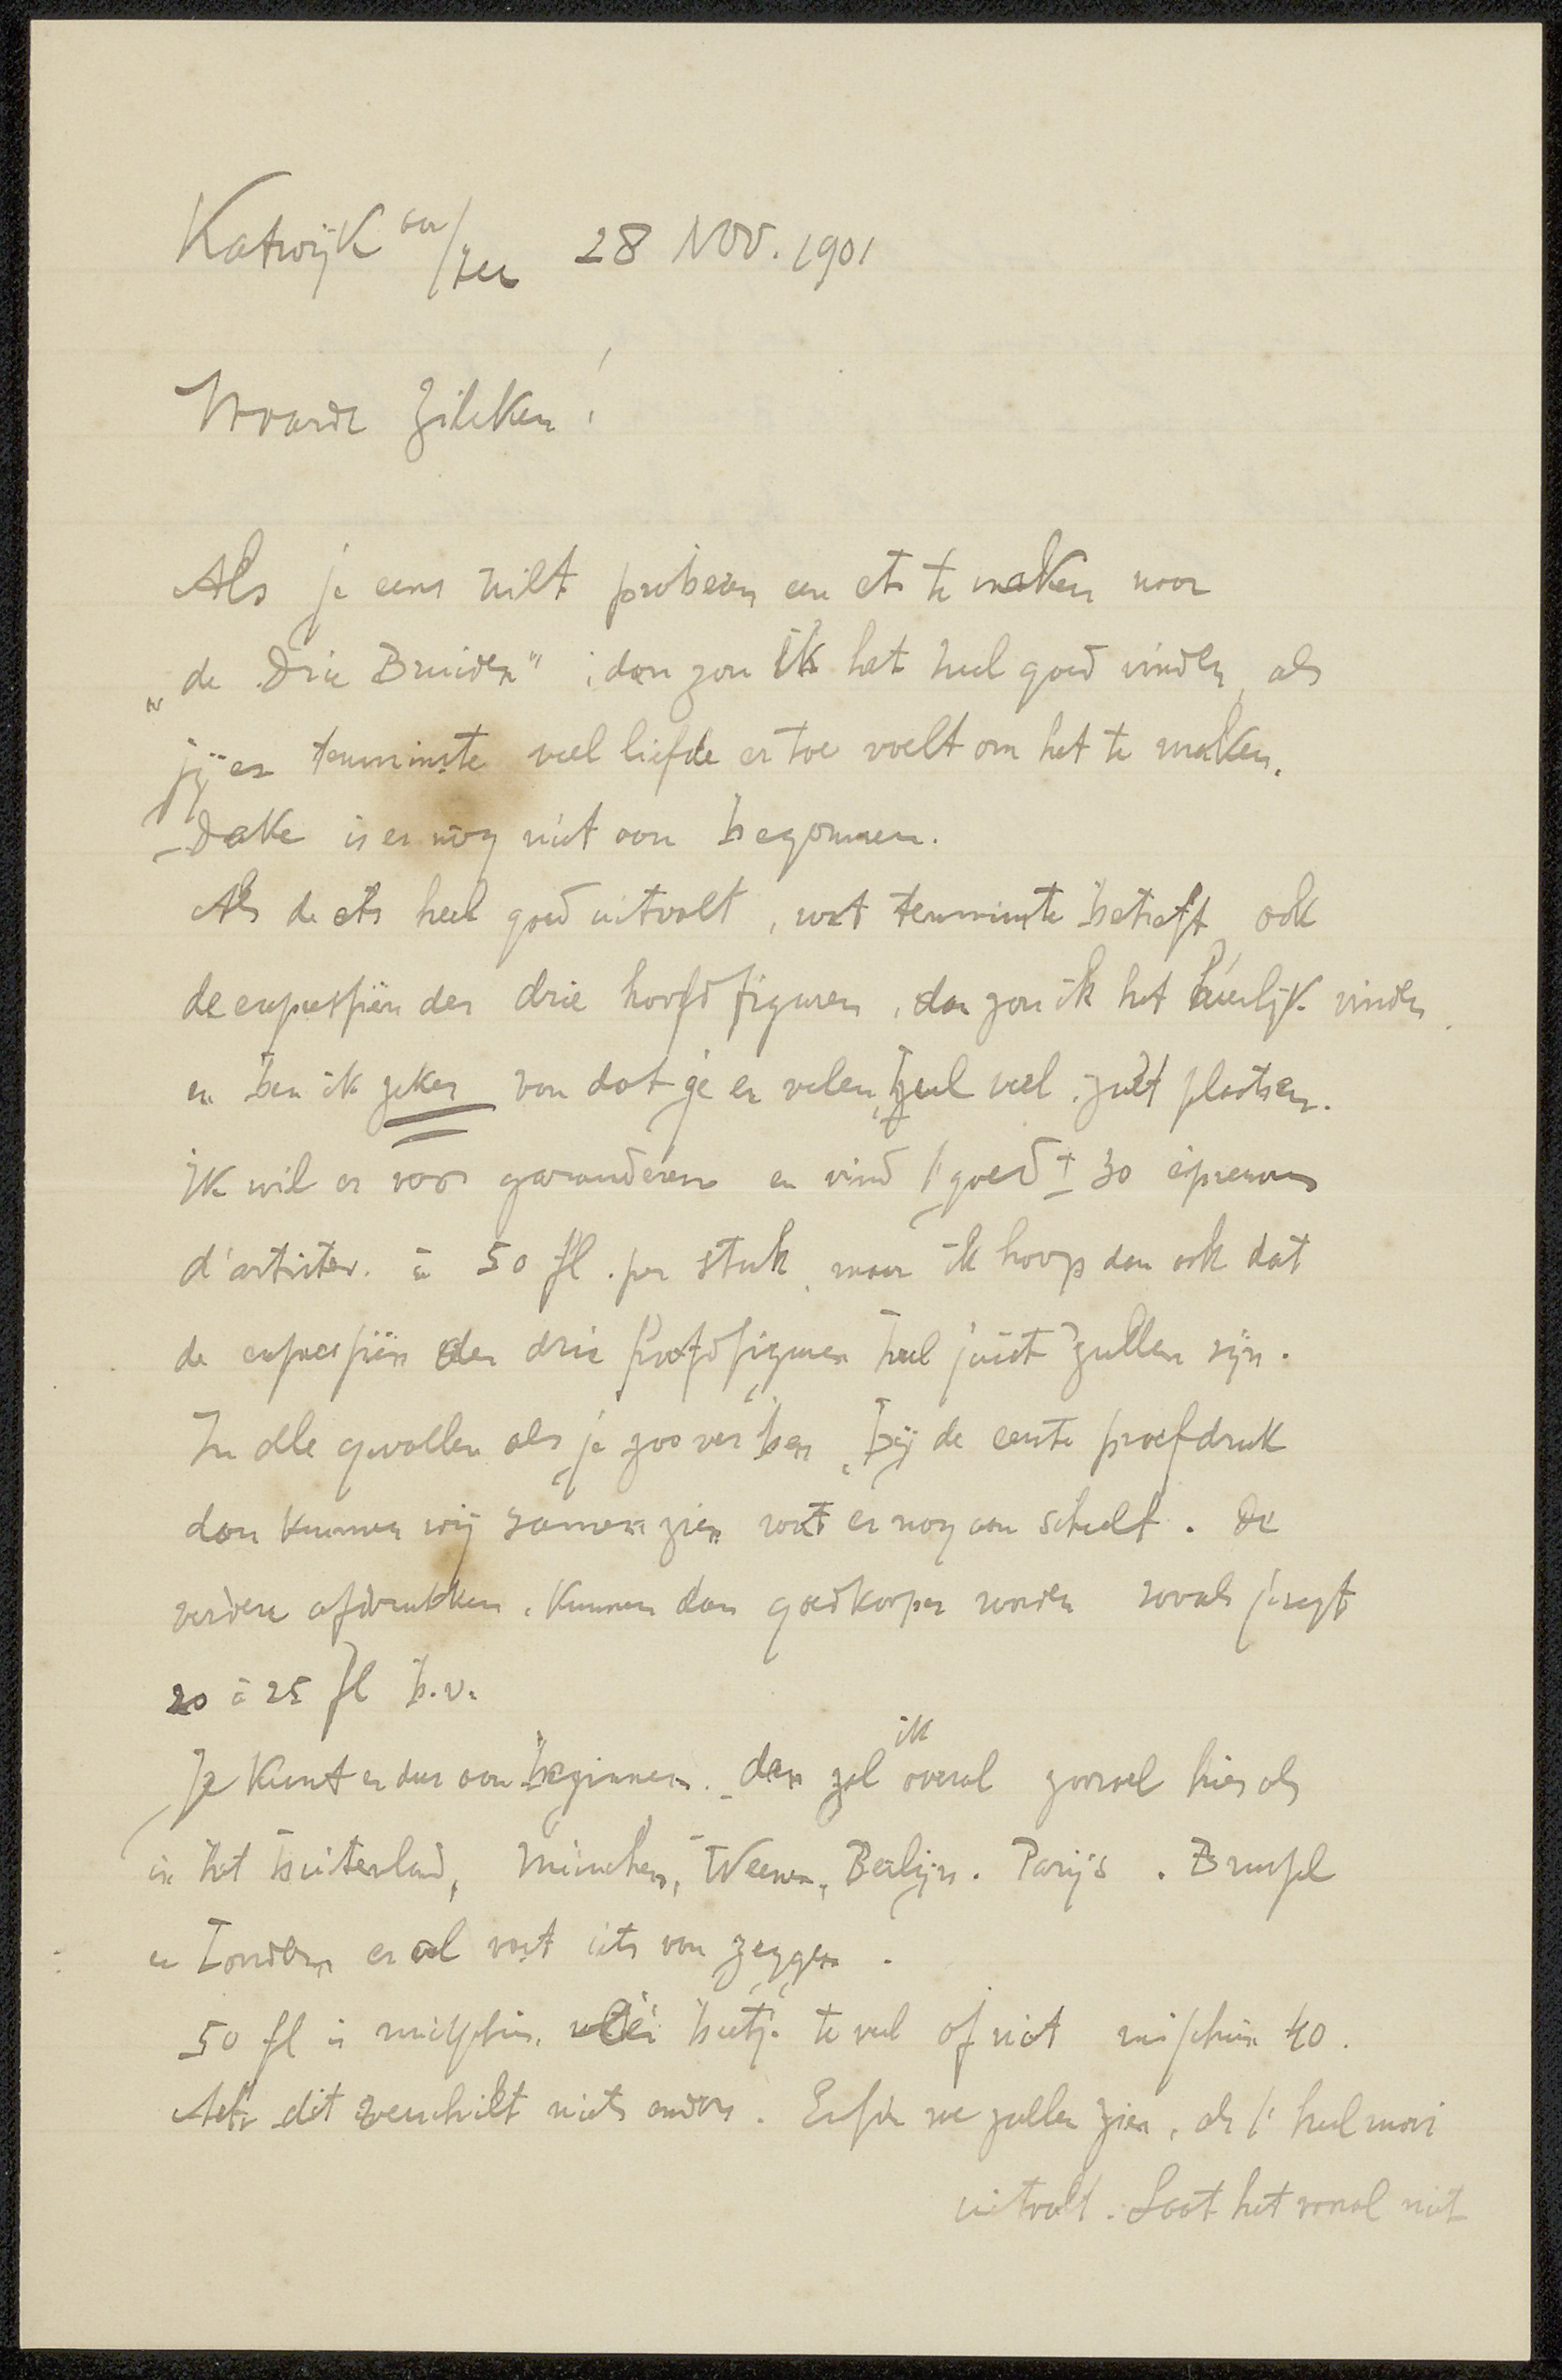 Katwijk aan/zee 28 Nov. 1901
Waarde Zilcken!
Als je eens wilt probeeren een ets te maken naar
„de Drie Bruiden", dan zou ik het heel goed vinden, als
jij er tenminste veel liefde er toe voelt om het te maken.
Dake is er nog niet aan begonnen.
Als de ets heel goed uitvalt, wat tenminste betreft ook
de expressiën der drie hoofdfiguren, dan zou ik het heerlijk vinden
en ben ik zeker van dat je er velen, heel veel zult plaatsen.
Ik wil er voor garanderen en vind 't goed ± 30 épreuves
d'artistes. à 50 fl. per stuk, maar ik hoop dan ook dat
de expressiën der drie hoofdfiguren heel juist zullen zijn.
In alle gevallen als je zoo ver ben, bij de eerste proefdruk
dan kunnen wij samen zien wat er nog aan scheelt. De
verdere afdrukken, kunnen dan goedkooper worden zooals je zegt
20 à 25 fl b.v.
Je kunt er dus aan beginnen. dan zal ik overal zoowel hier als
in het buitenland, München, Weenen, Berlijn. Parijs. Brussel
en Londen er al vast iets van zeggen.
50 fl is misschien beetje te veel of niet misschien 40.
dit verschilt niets anders. Enfin we zullen zien, als 't heel mooi
uitvalt. Laat het vooral niet